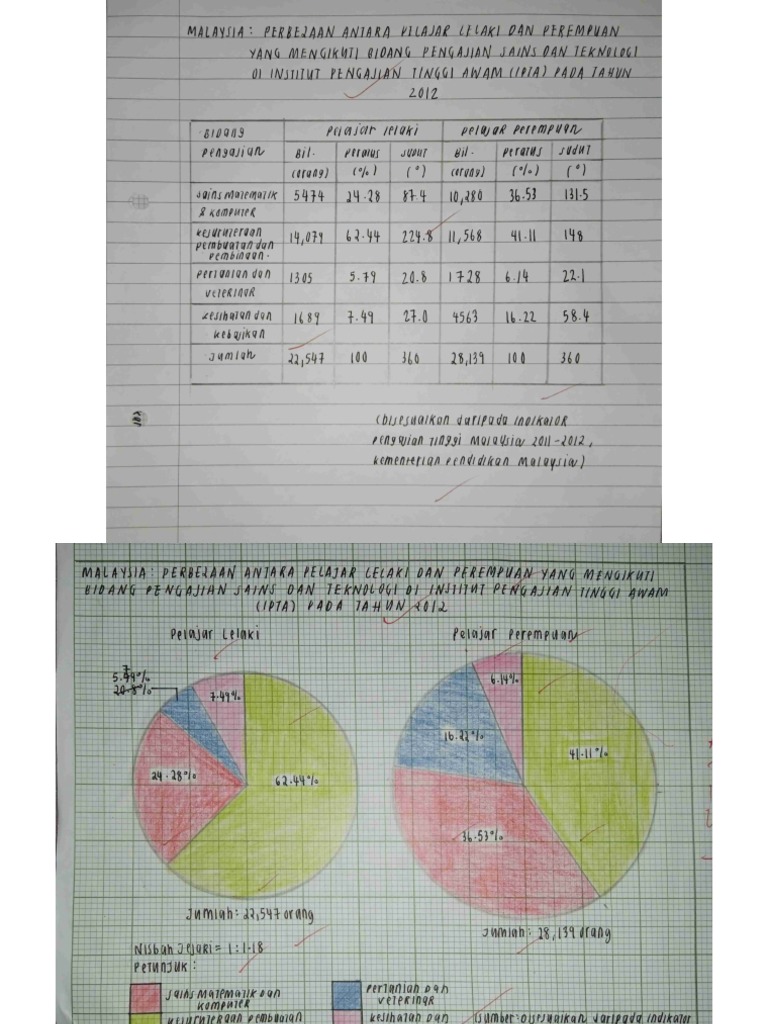 MALAYSIA : PERBEZAAN ANTARA PELAJAR LELAKI DAN PEREMPUAN
YANG MENGIKUTI BIDANG PENGAJIAN SAINS DAN TEKNOLOGI
DI INSTITUT PENGAJIAN TINGGI AWAM (IPTA) PADA TAHUN
2012
Bidang Pelajar Lelaki Pelajar Perempuan
Pengajian Bil. Peratus Sudut Bil. Peratus Sudut
(orang) (%) (°) (orang) (%) (°)
Sains Matematik 5474 24.28 87.4 10,280 36.53 131.5
& Komputer
Kejuruteraan 14,079 62.44 224.8 11,568 41.11 148
pembuatan dan
pembinaan.
Pertanian dan 1305 5.79 20.8 1728 6.14 22.1
veterinar
Kesihatan dan 1689 7.49 27.0 4563 16.22 58.4
kebajikan
Jumlah 22,547 100 360 28,139 100 360
(Disesuaikan daripada Indikator
Pengajian Tinggi Malaysia 2011-2012,
Kementerian Pendidikan Malaysia)
MALAYSIA : PERBEZAAN ANTARA PELAJAR LELAKI DAN PEREMPUAN YANG MENGIKUTI
BIDANG PENGAJIAN SAINS DAN TEKNOLOGI DI INSTITUT PENGAJIAN TINGGI AWAM
(IPTA) PADA TAHUN 2012
Pelajar Lelaki Pelajar Perempuan
7.49%
24.28%
62.44%
6.14%
16.22%
41.11%
36.53%
Jumlah : 22,547 orang
Jumlah : 28,139 orang
Nisbah Jejari = 1 : 1.18
Petunjuk :
Sains Matematik dan
Komputer
Pertanian dan
veterinar
Kejuruteraan Pembuatan
Kesihatan dan
(Sumber: Disesuaikan daripada Indikator